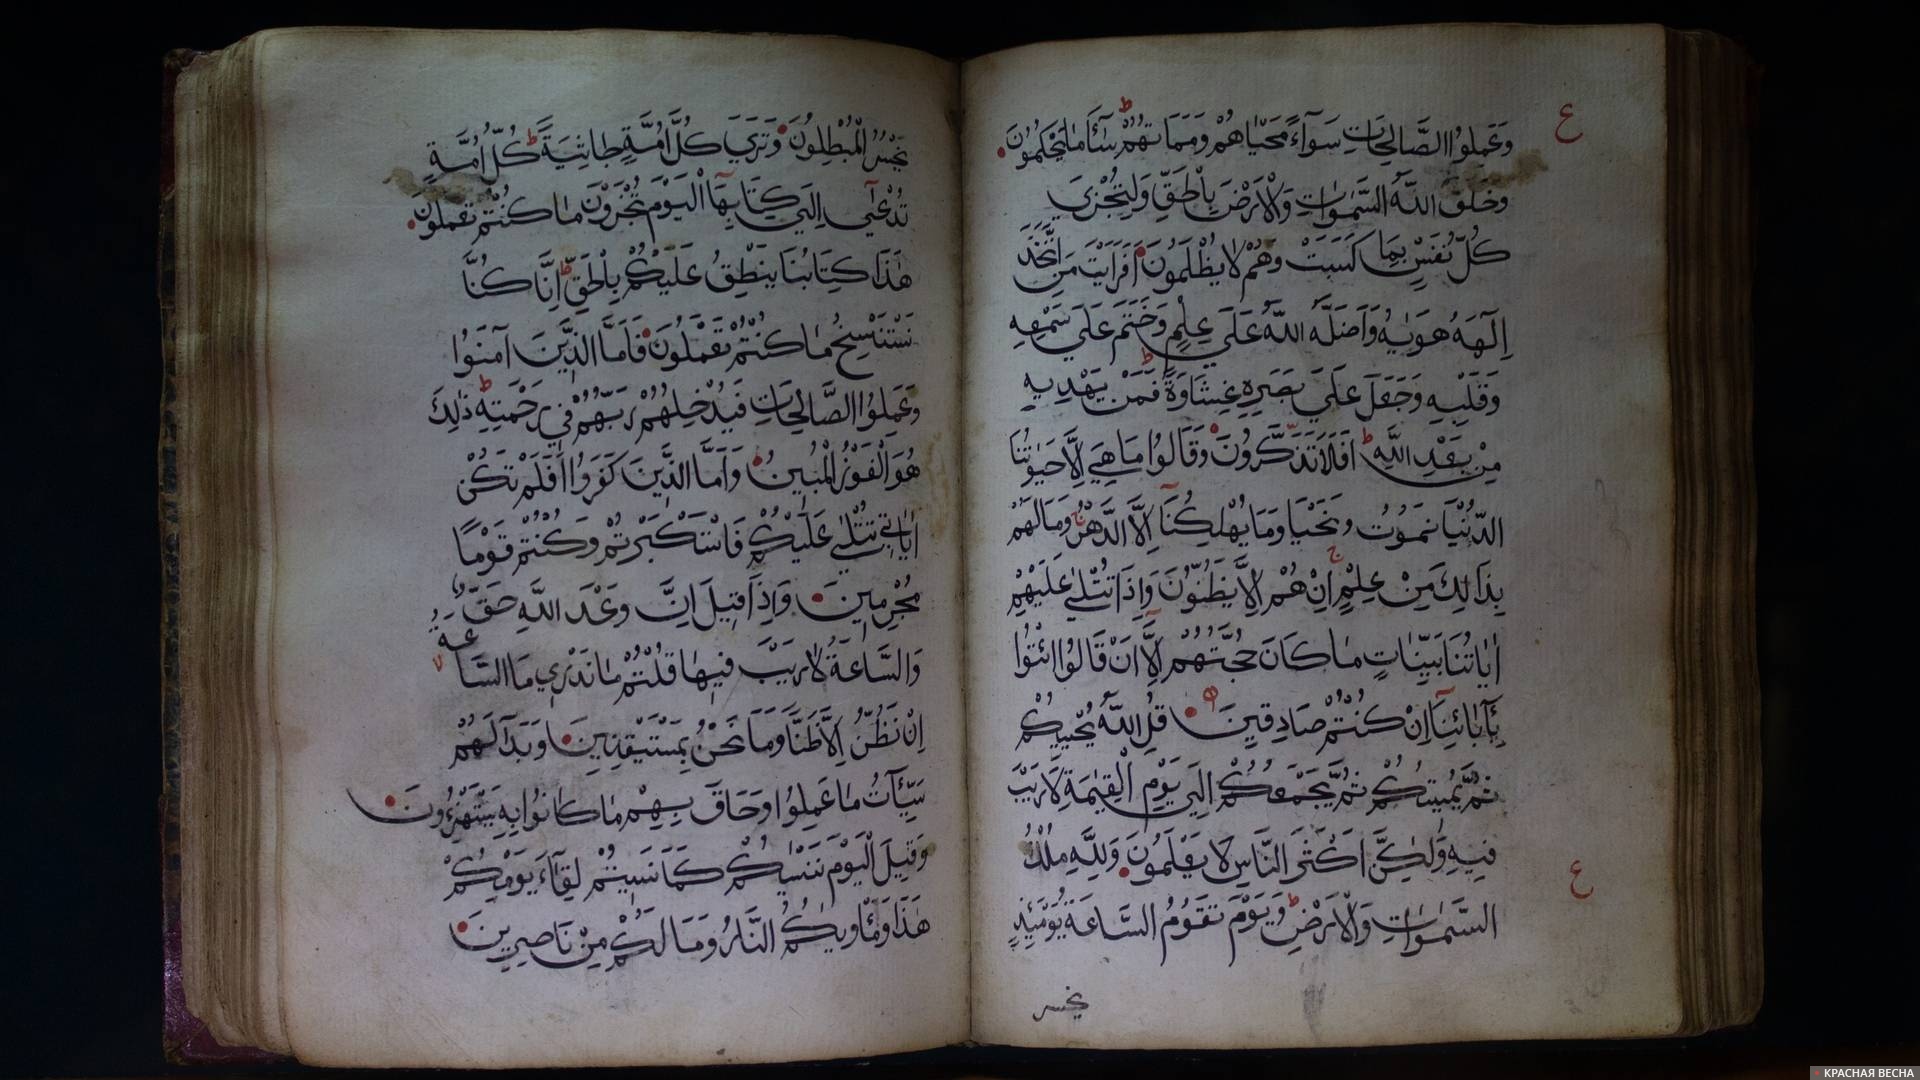 ع
وَعَمِلُوا الصَّالِحَاتِ سَوَآءً مَحْيَاهُمْ وَمَمَاتُهُمْ ط سَآءَ مَا يَحْكُمُونَ
وَخَلَقَ اللَّهُ السَّمٰوَاتِ وَالْاَرْضَ بِالْحَقِّ وَلِتُجْزٰي
كُلُّ نَفْسٍ بِمَا كَسَبَتْ وَهُمْ لَا يُظْلَمُونَ اَفَرَاَيْتَ مَنِ اتَّخَذَ
اِلٰهَهُ هَوٰيهُ وَاَضَلَّهُ اللَّهُ عَلَي عِلْمٍ وَخَتَمَ عَلَي سَمْعِهِ
وَقَلْبِهِ وَجَعَلَ عَلَي بَصَرِهِ غِشَاوَةً ط فَمَنْ يَهْدِيهِ
مِنْ بَعْدِ اللَّهِ ط اَفَلَا تَذَكَّرُونَ وَقَالُوا مَا هِيَ اِلَّا حَيٰوتُنَا
الدُّنْيَا نَمُوتُ وَنَحْيَا وَمَا يُهْلِكُنَا اِلَّا الدَّهْرُ ج وَمَا لَهُمْ
بِذَالِكَ مِنْ عِلْمٍ ج اِنْ هُمْ اِلَّا يَظُنُّونَ وَاِذَا تُتْلٰي عَلَيْهِمْ
اٰيَاتُنَا بَيِّنَاتٍ مَا كَانَ حُجَّتَهُمْ اِلَّا اَنْ قَالُوا ائْتُوا
بِآبَائِنَا اِنْ كُنْتُمْ صَادِقِينَ قُلِ اللَّهُ يُحْيِيكُمْ
ثُمَّ يُمِيتُكُمْ ثُمَّ يَجْمَعُكُمْ اِلَي يَوْمِ الْقِيٰمَةِ لَا رَيْبَ
فِيهِ وَلٰكِنَّ اَكْثَرَ النَّاسِ لَا يَعْلَمُونَ وَلِلَّهِ مُلْكُ
ع
السَّمٰوَاتِ وَالْاَرْضِ ط وَيَوْمَ تَقُومُ السَّاعَةُ يَوْمَئِذٍ
يخسر
يَخْسَرُ الْمُبْطِلُونَ وَتَرَي كُلَّ اُمَّةٍ جَاثِيَةً ط كُلُّ اُمَّةٍ
تُدْعٰٓي اِلَي كِتَابِهَا الْيَوْمَ تُجْزَوْنَ مَا كُنْتُمْ تَعْمَلُونَ
هَذَا كِتَابُنَا يَنْطِقُ عَلَيْكُمْ بِالْحَقِّ ط اِنَّا كُنَّا
نَسْتَنْسِخُ مَا كُنْتُمْ تَعْمَلُونَ فَاَمَّا الَّذِينَ آمَنُوا
وَعَمِلُوا الصَّالِحَاتِ فَيُدْخِلُهُمْ رَبُّهُمْ فِي رَحْمَتِهِ ط ذٰلِكَ
هُوَ الْفَوْزُ الْمُبِينُ وَاَمَّا الَّذِينَ كَفَرُوا اَفَلَمْ تَكُنْ
اٰيَاتِي تُتْلٰي عَلَيْكُمْ فَاسْتَكْبَرْتُمْ وَكُنْتُمْ قَوْمًا
مُجْرِمِينَ وَاِذَا قِيلَ اِنَّ وَعْدَ اللَّهِ حَقٌّ
وَالسَّاعَةُ لَا رَيْبَ فِيهَا قُلْتُمْ مَا نَدْرِي مَا السَّاعَةُ
اِنْ نَظُنُّ اِلَّا ظَنًّا وَمَا نَحْنُ بِمُسْتَيْقِنِينَ وَبَدَا لَهُمْ
سَيِّئَاتُ مَا عَمِلُوا وَحَاقَ بِهِمْ مَا كَانُوا بِهِ يَسْتَهْزِءُونَ
وَقِيلَ الْيَوْمَ نَنْسٰيكُمْ كَمَا نَسِيتُمْ لِقَآءَ يَوْمِكُمْ
هٰذَا وَمَأْوٰيكُمُ النَّارُ وَمَا لَكُمْ مِنْ نَاصِرِينَ
КРАСНАЯ ВЕСНА